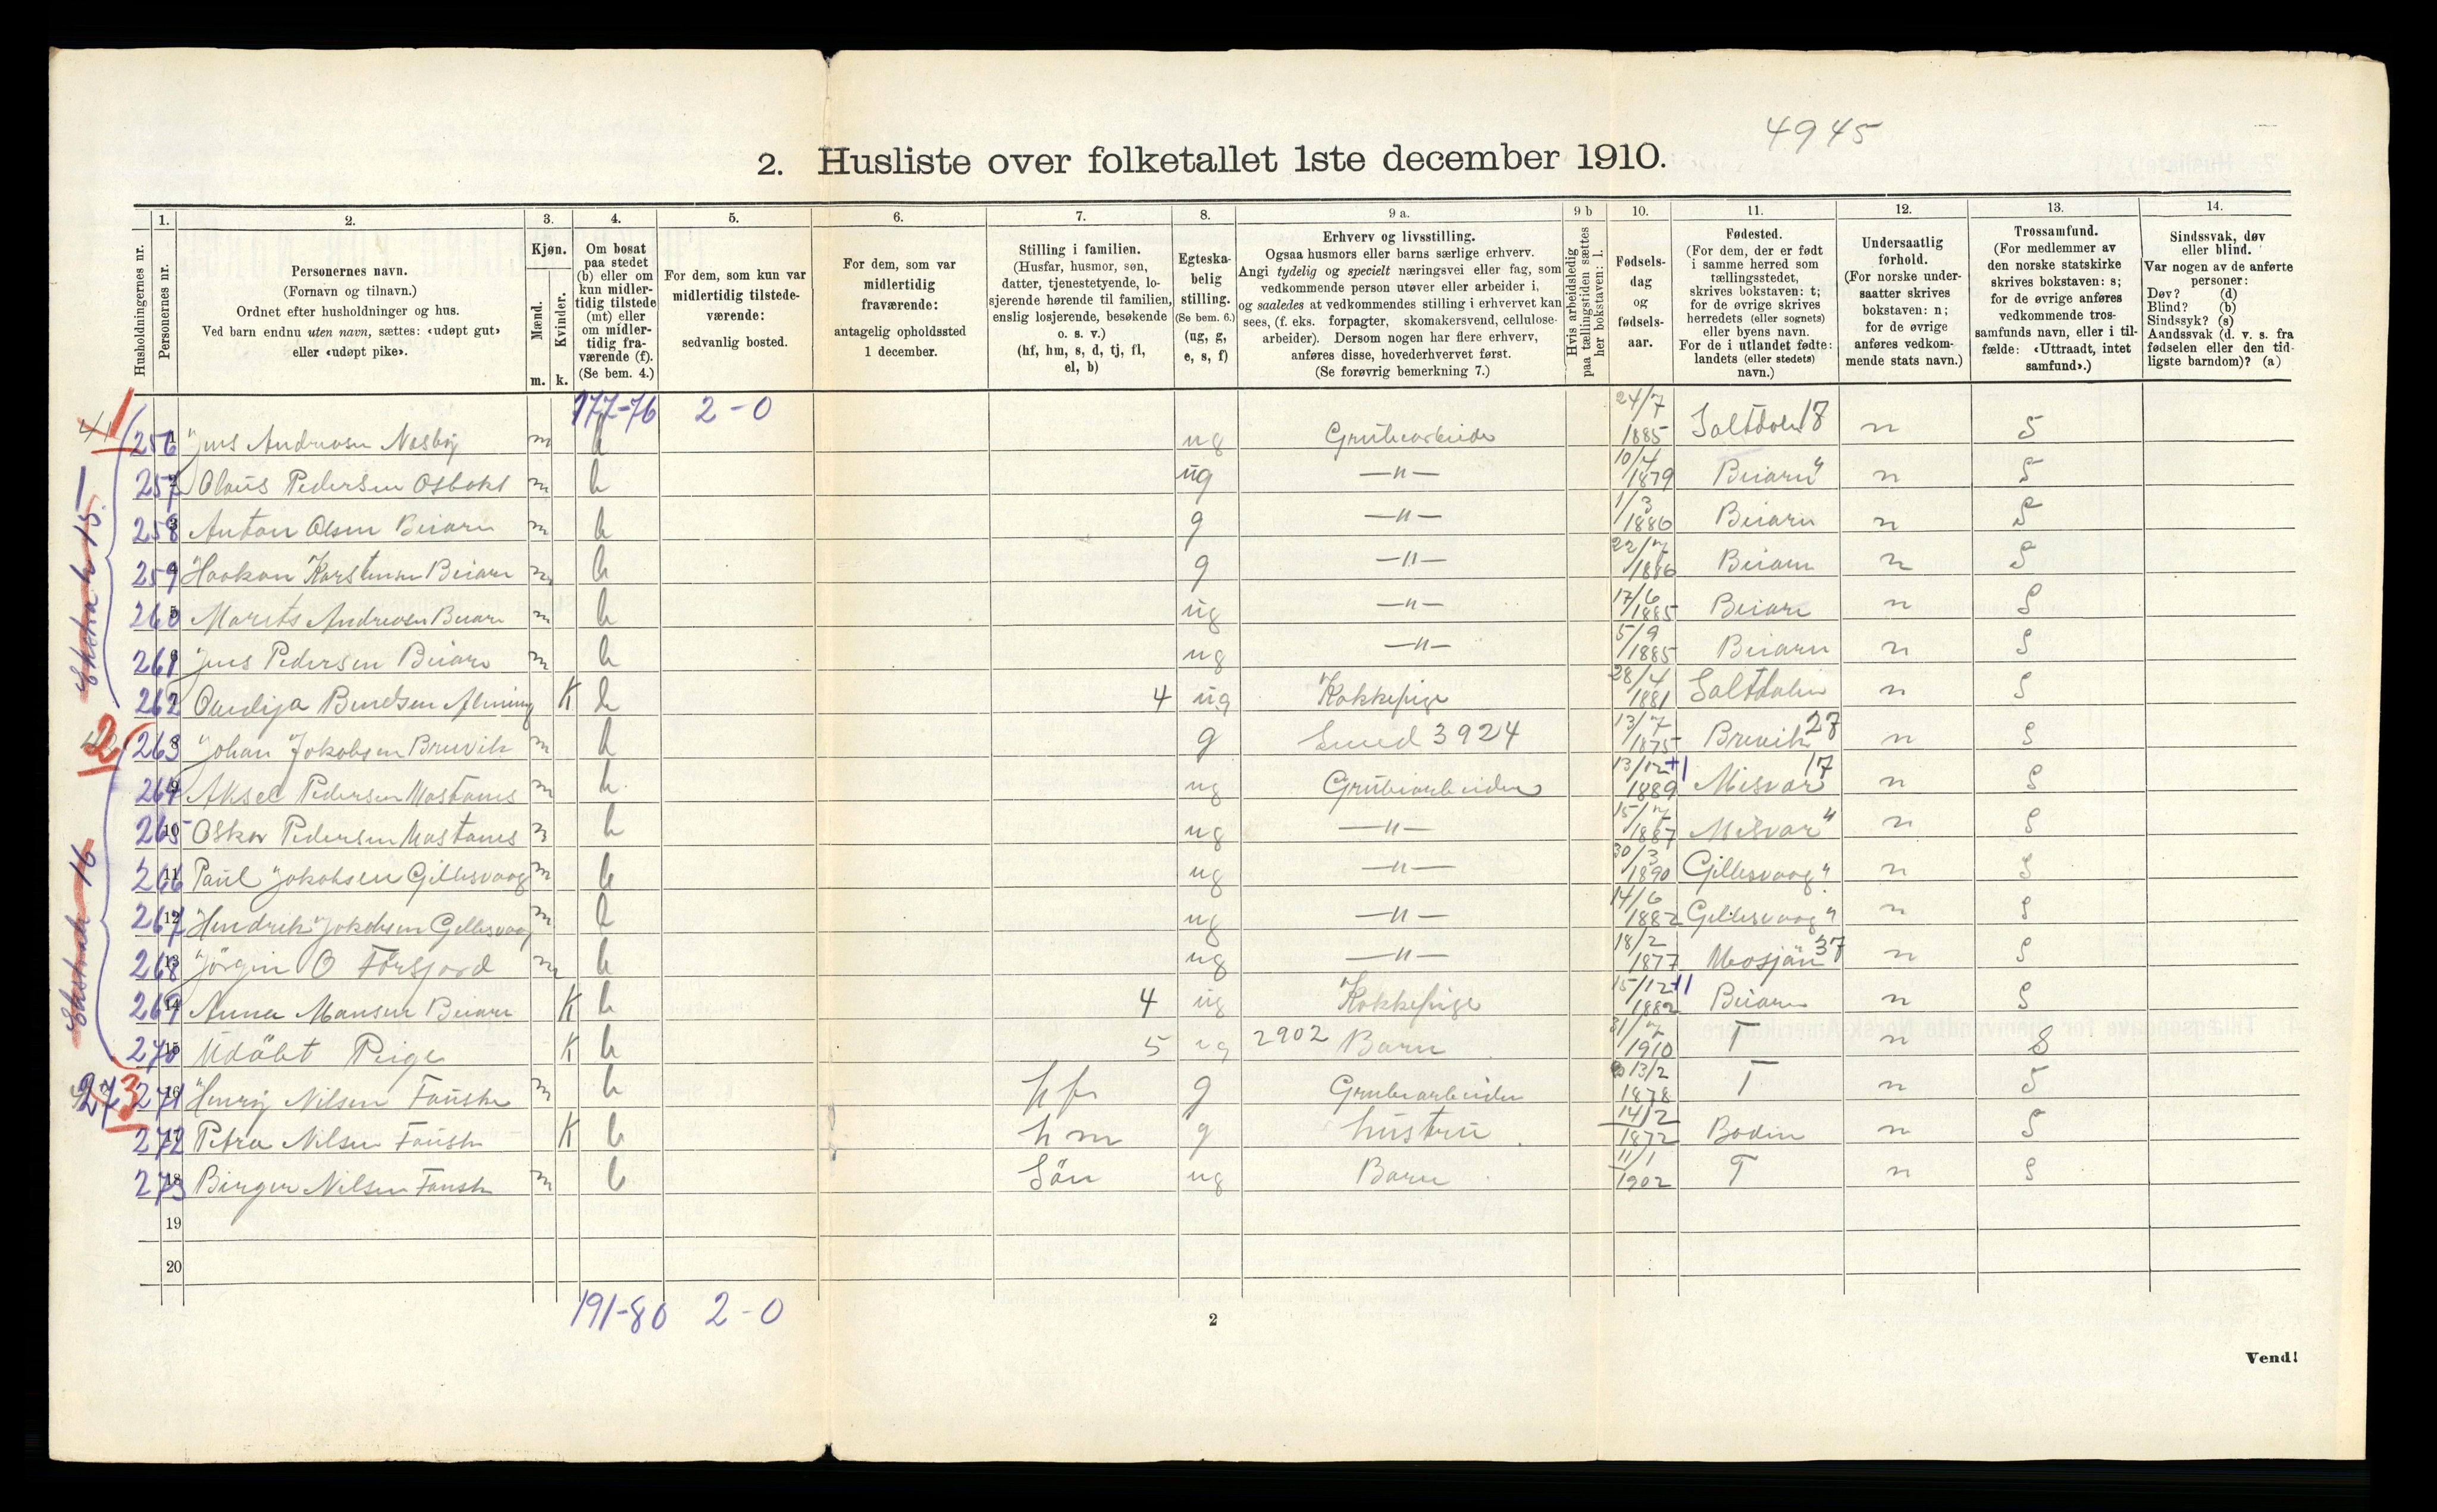 4945
2. Husliste over folketallet 1ste december 1910.
1. 2. 3. 4. 5. 6. 7. 8. 9 a. 9 b 10. 11. 12. 13. 14.
Husholdningernes nr.
Personernes nr.
Personernes navn.
(Fornavn og tilnavn.)
Ordnet efter husholdninger og hus.
Ved barn endnu uten navn, sættes: «udøpt gut»
eller «udøpt pike».
Kjøn.
Mænd.
Kvinder.
m. k.
Om bosat
paa stedet
(b) eller om
kun midler-
tidig tilstede
(mt) eller
om midler-
tidig fra-
værende (f).
(Se bem. 4.)
For dem, som kun var
midlertidig tilstede-
værende:
sedvanlig bosted.
For dem, som var
midlertidig
fraværende:
antagelig opholdssted
1 december.
Stilling i familien.
(Husfar, husmor, søn,
datter, tjenestetyende, lo-
sjerende hørende til familien,
enslig losjerende, besøkende
o. s. v.)
(hf, hm, s, d, tj, fl,
el, b)
Egteska-
belig
stilling.
(Se bem. 6.)
(ug, g,
e, s, f)
Erhverv og livsstilling.
Ogsaa husmors eller barns særlige erhverv.
Angi tydelig og specielt næringsvei eller fag, som
vedkommende person utøver eller arbeider i,
og saaledes at vedkommendes stilling i erhvervet kan
sees, (f. eks. forpagter, skomakersvend, cellulose-
arbeider). Dersom nogen har flere erhverv,
anføres disse, hovederhvervet først.
(Se forøvrig bemerkning 7.)
Hvis arbeidsledig
paa tællingstiden sættes
her bokstaven: l.
Fødsels-
dag
og
fødsels-
aar.
Fødested.
(For dem, der er født
i samme herred som
tællingsstedet,
skrives bokstaven: t;
for de øvrige skrives
herredets (eller sognets)
eller byens navn.
For de i utlandet fødte:
landets (eller stedets)
navn.)
Undersaatlig
forhold.
(For norske under-
saatter skrives
bokstaven: n;
for de øvrige
anføres vedkom-
mende stats navn.)
Trossamfund.
(For medlemmer av
den norske statskirke
skrives bokstaven: s;
for de øvrige anføres
vedkommende tros-
samfunds navn, eller i til-
fælde: «Uttraadt, intet
samfund».)
Sindssvak, døv
eller blind.
Var nogen av de anførte
personer:
Døv? (d)
Blind? (b)
Sindssyk? (s)
Aandssvak (d. v. s. fra
fødselen eller den tid-
ligste barndom)? (a)
177-76 2-0
256 1 Jens Andreasen m b ug Grubearbeider 24/7 1885 Saltdalen 18 n S
257 2 Olaus Pedersen Osbakk m b ug —"— 10/4 1879 Beiarn " n S
258 3 Anton Olsen Beiarn m b g —"— 1/3 1886 Beiarn n S
259 4 Haakon Karstensen Beiarn m b g —"— 22/7 1886 Beiarn n S
260 5 Andreasen Beiarn m b ug —"— 17/6 1885 Beiarn n S
261 6 Jens Pedersen Beiarn m b ug —"— 5/9 1885 Beiarn n S
262 K b 4 ug Kokkepige 28/4 1881 Saltdalen n S
263 8 Johan Jakobsen Bruvik m b g Smed 3924 13/7 1875 27 n S
264 9 Aksel Pedersen m b ug Grubearbeider 13/12 1889 Misvær 17 n S
265 10 Oskar Pedersen m b ug —"— 15/7 1887 Misvær " n S
266 11 Paul Jakobsen Gillesvaag m b ug —"— 30/3 1890 Gillesvaag " n S
267 12 Hendrik Jakobsen Gillesvaag m b ug —"— 14/6 1882 Gillesvaag " n S
268 13 Jörgen O m b ug —"— 18/2 1877 Mosjön 37 n S
269 14 Anna Beiarn K b 4 ug Kokkepige 15/12 1882 Beiarn n S
270 15 Udöbt Peige K b 5 ug 2902 Barn 31/7 1910 T n S
271 16 Henrij Nilsen Fauske m b hf g Grubearbeider 13/2 1878 T n S
272 17 Petra Nilsen Fauske K b hm g hustru 14/2 1872 Bodin n S
273 18 Birger Nilsen Fauske m b Sön ug Barn 11/1 1902 T n S
19
20
191-80 2-0
2
Vend!